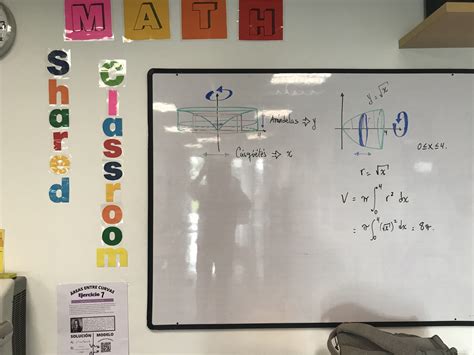 MATH
Shared
Classroom
y = √x
Arandelas ⇒ y
4
0 ≤ x ≤ 4.
Casquetes ⇒ x
r = √x
V = π ∫₀⁴ r² dx
= π ∫₀⁴ (√x)² dx = 8π.
ÁREAS ENTRE CURVAS
Ejercicio 7
SOLUCIÓN MODELO